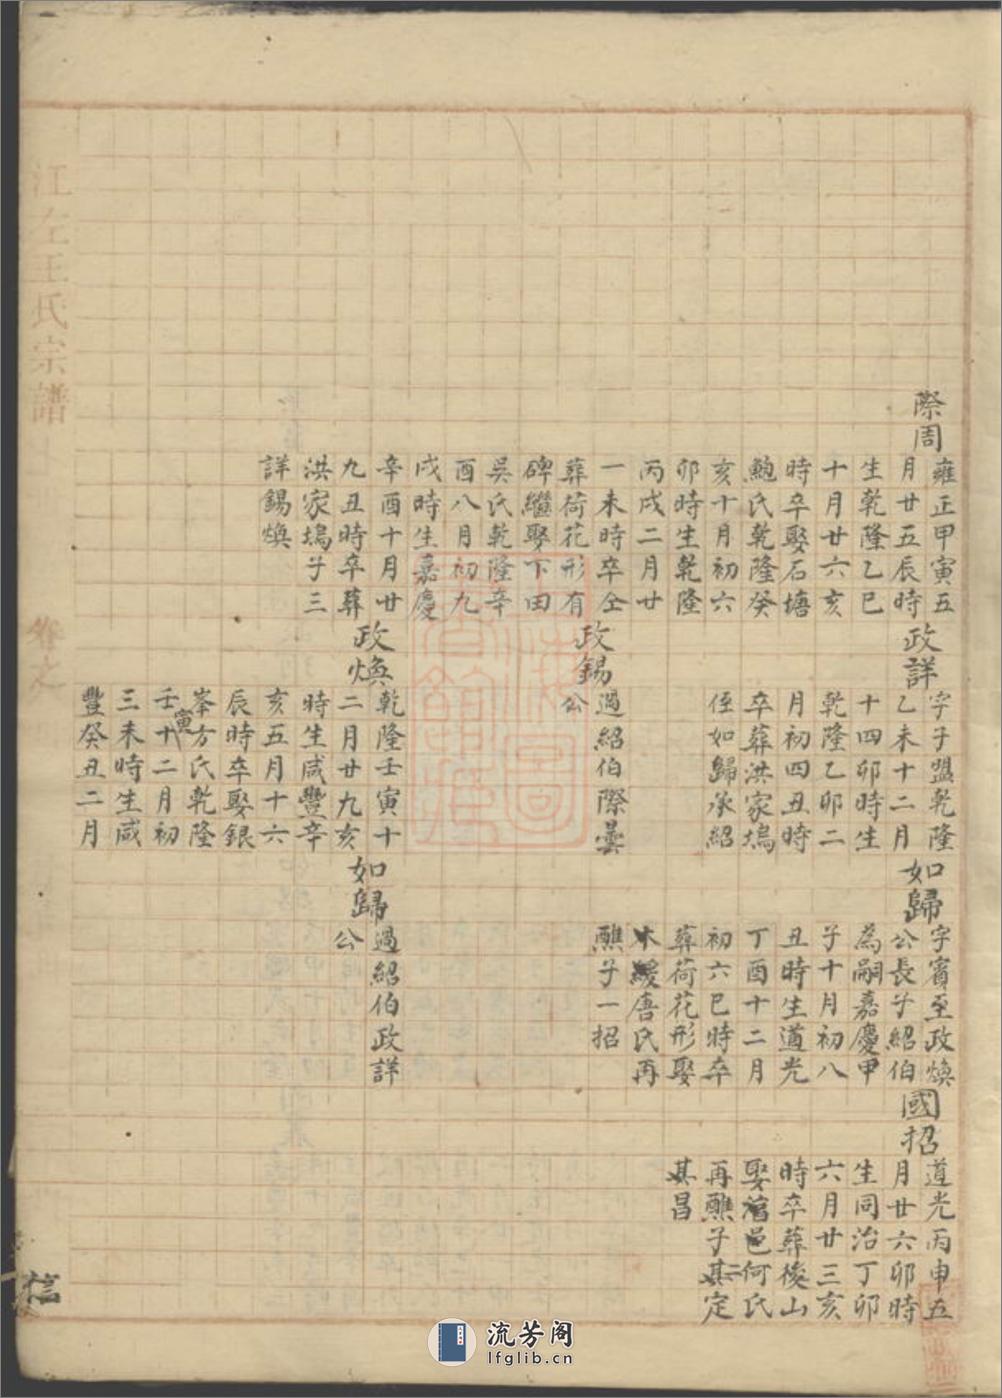 江左王氏宗譜
卷之
際周
雍正甲寅五
月廿五辰時
生乾隆乙巳
十月廿六亥
時卒娶石塘
鮑氏乾隆癸
亥十月初六
卯時生乾隆
丙戌二月廿
一未時卒仝
葬荷花形有
碑繼娶下田
吳氏乾隆辛
酉八月初九
戌時生嘉慶
辛酉十月廿
九丑時卒葬
洪家塢子三
詳錫煥
政詳
字子盟乾隆
乙未十二月
十四卯時生
乾隆乙卯二
月初四丑時
卒葬洪家塢
侄如歸承紹
政錫
過紹伯際曇
公
政煥
乾隆壬寅十
二月廿九亥
時生咸豐辛
亥五月十六
辰時卒娶銀
峯方氏乾隆
壬寅十二月初
三未時生咸
豐癸丑二月
如歸
字賓至政煥
公長子紹伯
為嗣嘉慶甲
子十月初八
丑時生道光
丁酉十二月
初六巳時卒
葬荷花形娶
木緩唐氏再
醮子一招
如歸
過紹伯政詳
公
國招
道光丙申五
月廿六卯時
生同治丁卯
六月廿三亥
時卒葬後山
娶邑何氏
再醮子二其定
其昌
信
流芳阁
lfglib.cn